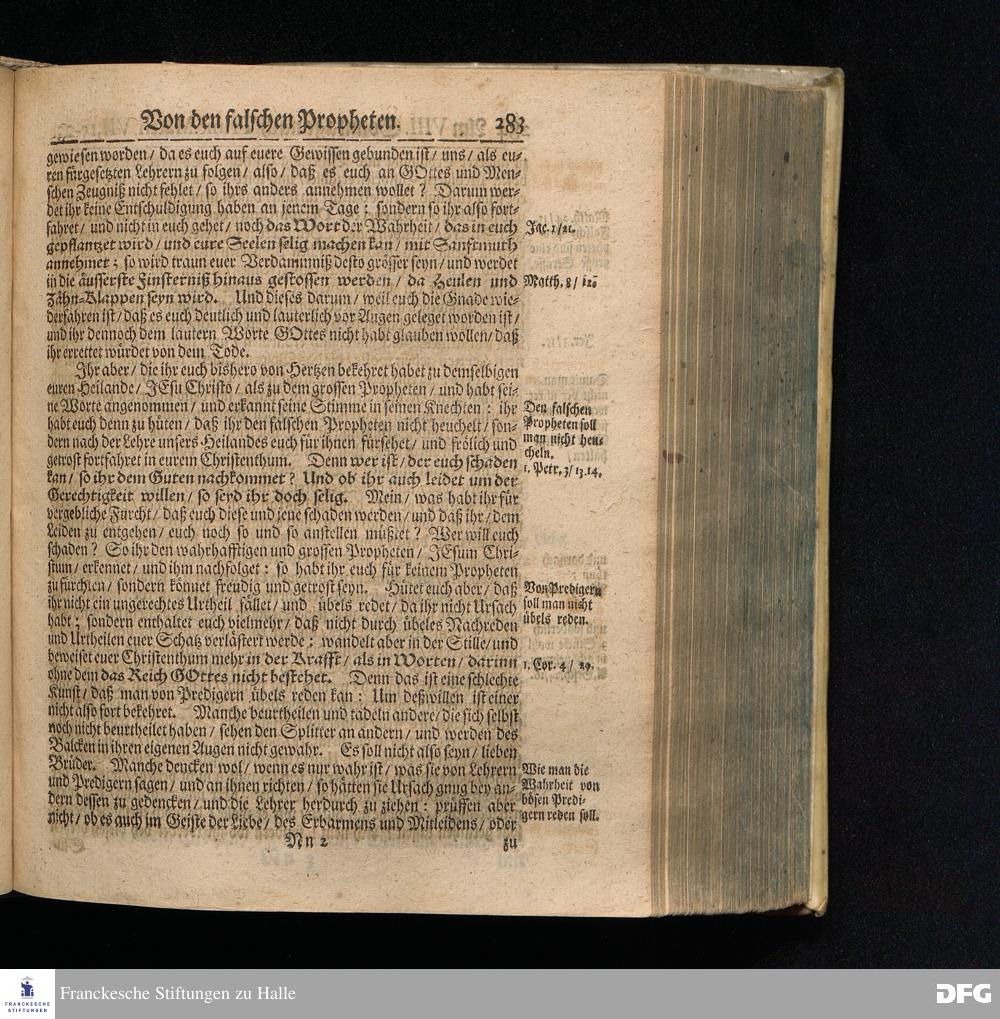 Von den falschen Propheten. 283
gewiesen worden / da es euch auf euere Gewissen gebunden ist / uns / als eu-
ren fürgesetzten Lehrern zu folgen / also / daß es euch an GOttes und Men-
schen Zeugniß nicht fehlet / so ihrs anders annehmen wollet ? Darum wer-
det ihr keine Entschuldigung haben an jenem Tage ; sondern so ihr also fort-
fahret / und nicht in euch gehet / noch das Wort der Wahrheit / das in euch
gepflantzet wird / und eure Seelen selig machen kan / mit Sanftmuth
annehmet ; so wird traun euer Verdammniß desto grösser seyn / und werdet
in die äusserste Finsterniß hinaus gestossen werden / da Heulen und
Zähn-Klappen seyn wird. Und dieses darum / weil euch die Gnade wie-
derfahren ist / daß es euch deutlich und lauterlich vor Augen geleget worden ist /
und ihr dennoch dem lautern Worte GOttes nicht habt glauben wollen / daß
ihr errettet würdet von dem Tode.
Ihr aber / die ihr euch bishero von Hertzen bekehret habet zu demselbigen
euren Heilande / JEsu Christo / als zu dem grossen Propheten / und habt sei-
ne Worte angenommen / und erkannt seine Stimme in seinen Knechten : ihr
habt euch denn zu hüten / daß ihr den falschen Propheten nicht heuchelt / son-
dern nach der Lehre unsers Heilandes euch für ihnen fürsehet / und frölich und
getrost fortfahret in eurem Christenthum. Denn wer ist / der euch schaden
kan / so ihr dem Guten nachkommet ? Und ob ihr auch leidet um der
Gerechtigkeit willen / so seyd ihr doch selig. Mein / was habt ihr für
vergebliche Furcht / daß euch diese und jene schaden werden / und daß ihr / dem
Leiden zu entgehen / euch noch so und so anstellen müßtet ? Wer will euch
schaden ? So ihr den wahrhafftigen und grossen Propheten / JEsum Chri-
stum / erkennet / und ihm nachfolget : so habt ihr euch für keinem Propheten
zu fürchten / sondern könnet freudig und getrost seyn. Hütet euch aber / daß
ihr nicht ein ungerechtes Urtheil fället / und übels redet / da ihr nicht Ursach
habt ; sondern enthaltet euch vielmehr / daß nicht durch übeles Nachreden
und Urtheilen euer Schatz verlästert werde ; wandelt aber in der Stille / und
beweiset euer Christenthum mehr in der Krafft / als in Worten / darinn
ohne dem das Reich GOttes nicht bestehet. Denn das ist eine schlechte
Kunst / daß man von Predigern übels reden kan : Um deßwillen ist einer
nicht also fort bekehret. Manche beurtheilen und tadeln andere / die sich selbst
noch nicht beurtheilet haben / sehen den Splitter an andern / und werden des
Balcken in ihren eigenen Augen nicht gewahr. Es soll nicht also seyn / lieben
Brüder. Manche dencken wol / wenn es nur wahr ist / was sie von Lehrern
und Predigern sagen / und an ihnen richten / so hätten sie Ursach gnug bey an-
dern dessen zu gedencken / und die Lehrer herdurch zu ziehen : prüffen aber
nicht / ob es auch im Geiste der Liebe / des Erbarmens und Mitleidens / oder
Nn 2 zu
Jac. 1 / 21.
Matth. 8 / 12.
Den falschen
Propheten soll
man nicht heu-
cheln.
1. Petr. 3 / 13. 14.
Von Predigern
soll man nicht
übels reden.
1. Cor. 4 / 20.
Wie man die
Wahrheit von
bösen Predi-
gern reden soll.
FRANCKESCHE
STIFTUNGEN
Franckesche Stiftungen zu Halle
DFG